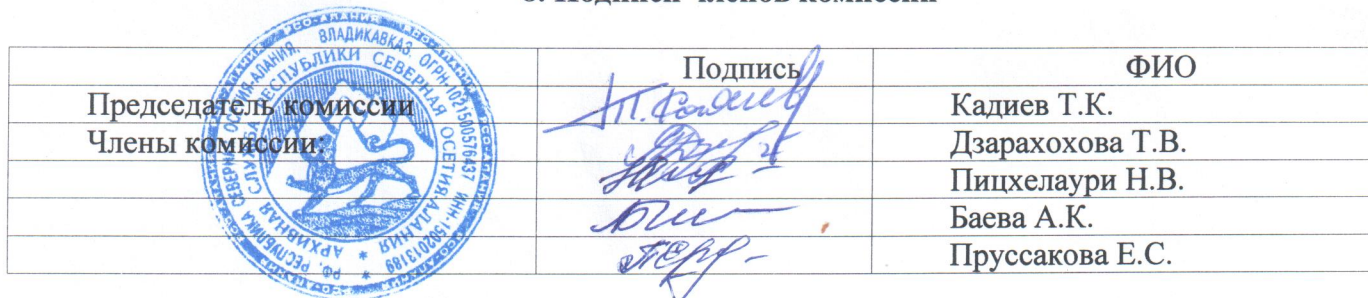 Подпись ФИО
Председатель комиссии Т. Кадиев Кадиев Т.К.
Члены комиссии: Дзарахохова Т.В.
Пицхелаури Н.В.
Баева А.К.
Пруссакова Е.С.
РФ, РЕСПУБЛИКА СЕВЕРНАЯ ОСЕТИЯ-АЛАНИЯ, ВЛАДИКАВКАЗ, ОГРН-1021500576437 ИНН-1502013189
АРХИВНАЯ СЛУЖБА РЕСПУБЛИКИ СЕВЕРНАЯ ОСЕТИЯ-АЛАНИЯ